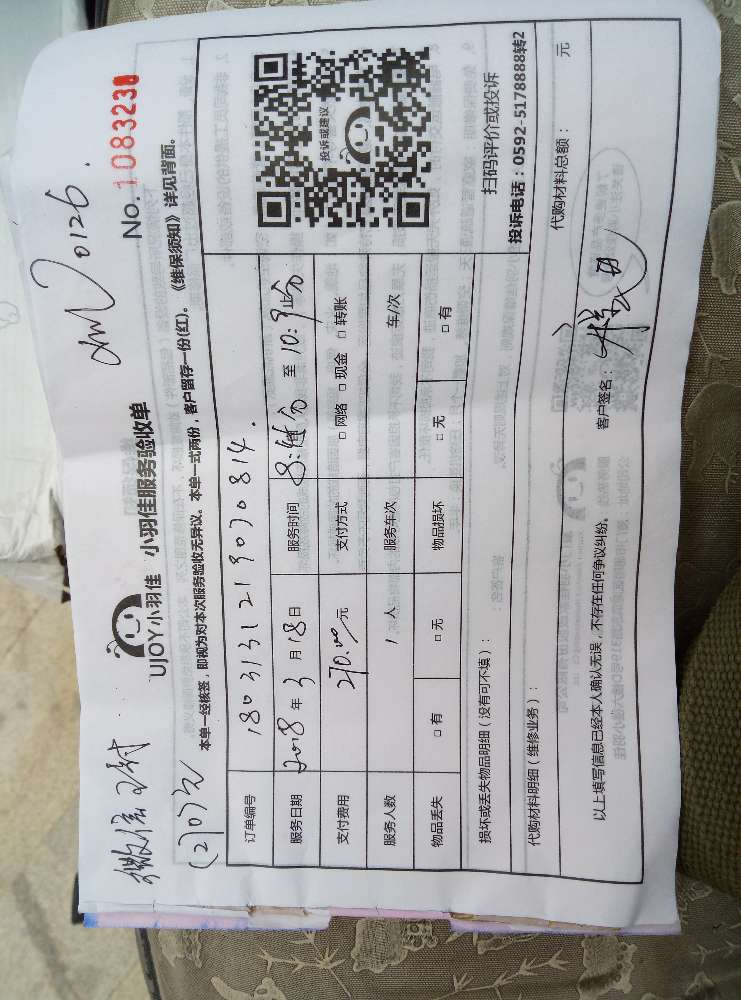 微信支付
(270元)
0126.
UJOY小羽佳 小羽佳服务验收单
No. 1083230
本单一经核签，即视为对本次服务验收无异议。本单一式两份，客户留存一份(红)。《维保须知》详见背面。
订单编号 180313121907 0814.
服务日期 2018年3月18日 服务时间 8: 分 至 10: 分
支付费用 270.00元 支付方式 □ 网络 □ 现金 □ 转账
服务人数 1人 服务车次 车/次
物品丢失 □ 有 □ 无 物品损坏 □ 无 □ 有
投诉或建议
扫码评价或投诉
投诉电话：0592-5178888转2
损坏或丢失物品明细（没有可不填）：
代购材料明细（维修业务）： 代购材料总额： 元
以上填写信息已经本人确认无误，不存在任何争议纠纷。 客户签名：